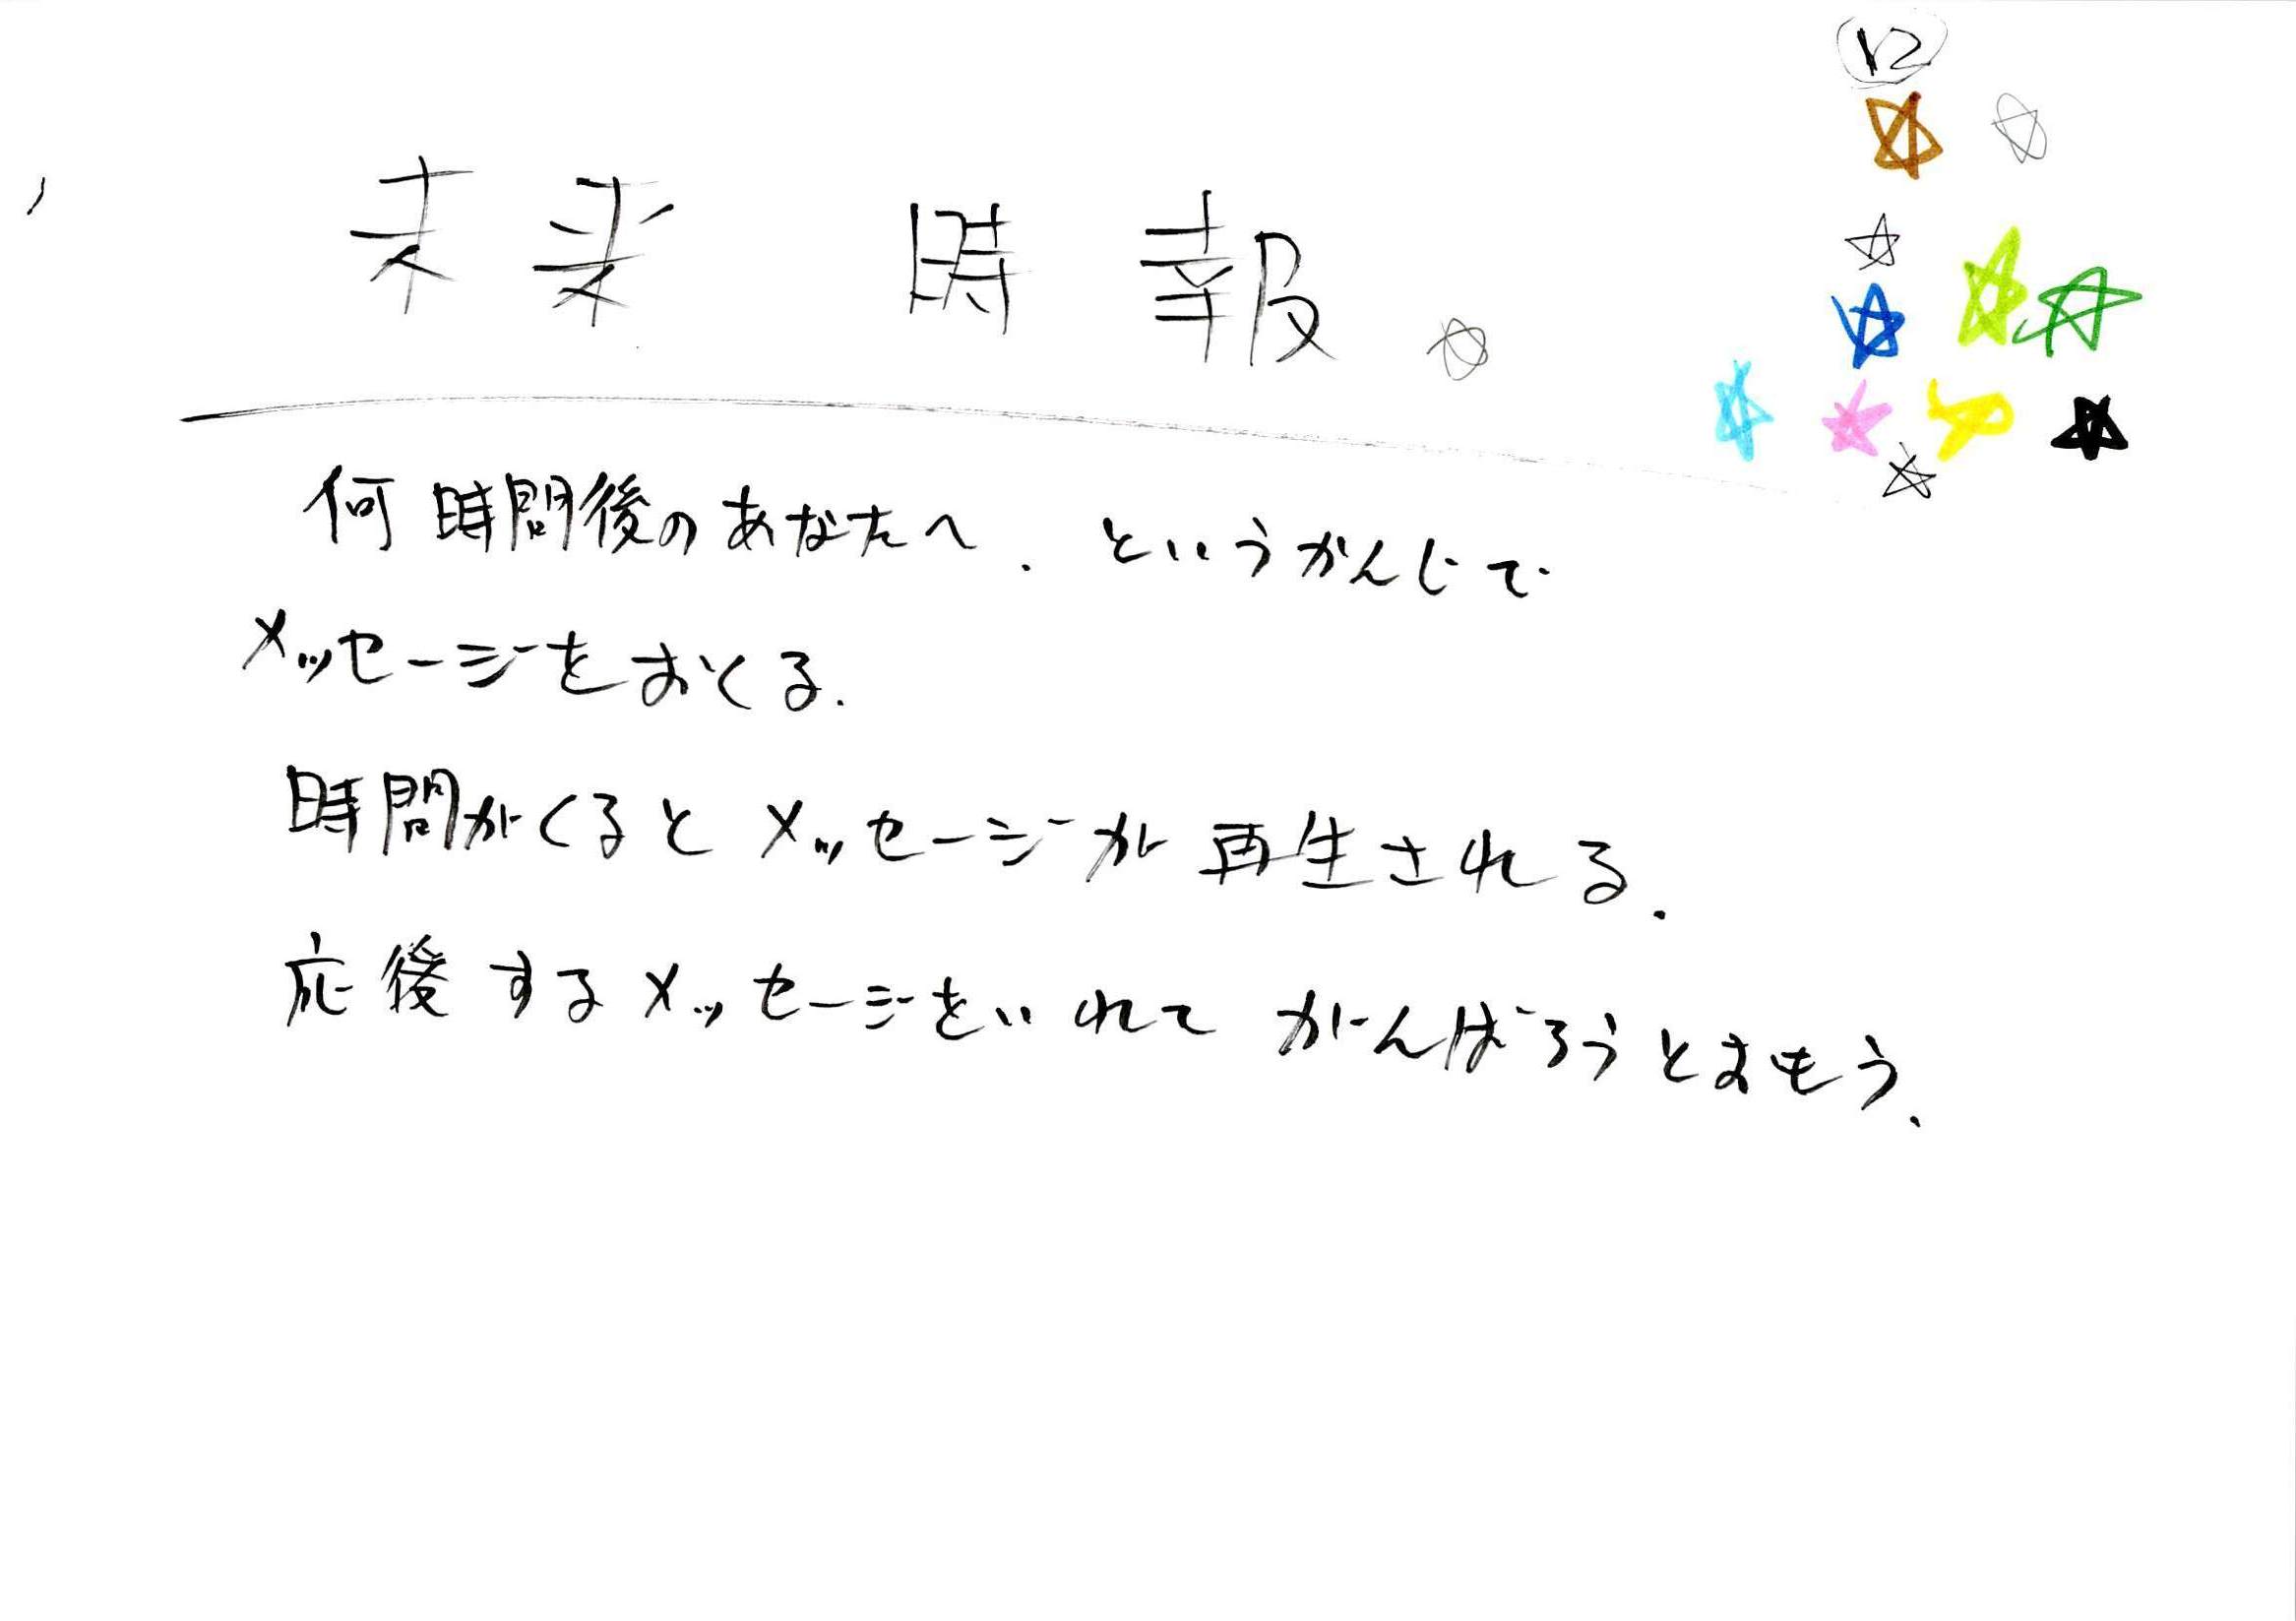 12
未来 時報
何時間後のあなたへ. というかんじで
メッセージをおくる.
時間がくるとメッセージが再生される.
応後するメッセージをいれてがんばろうとおもう.